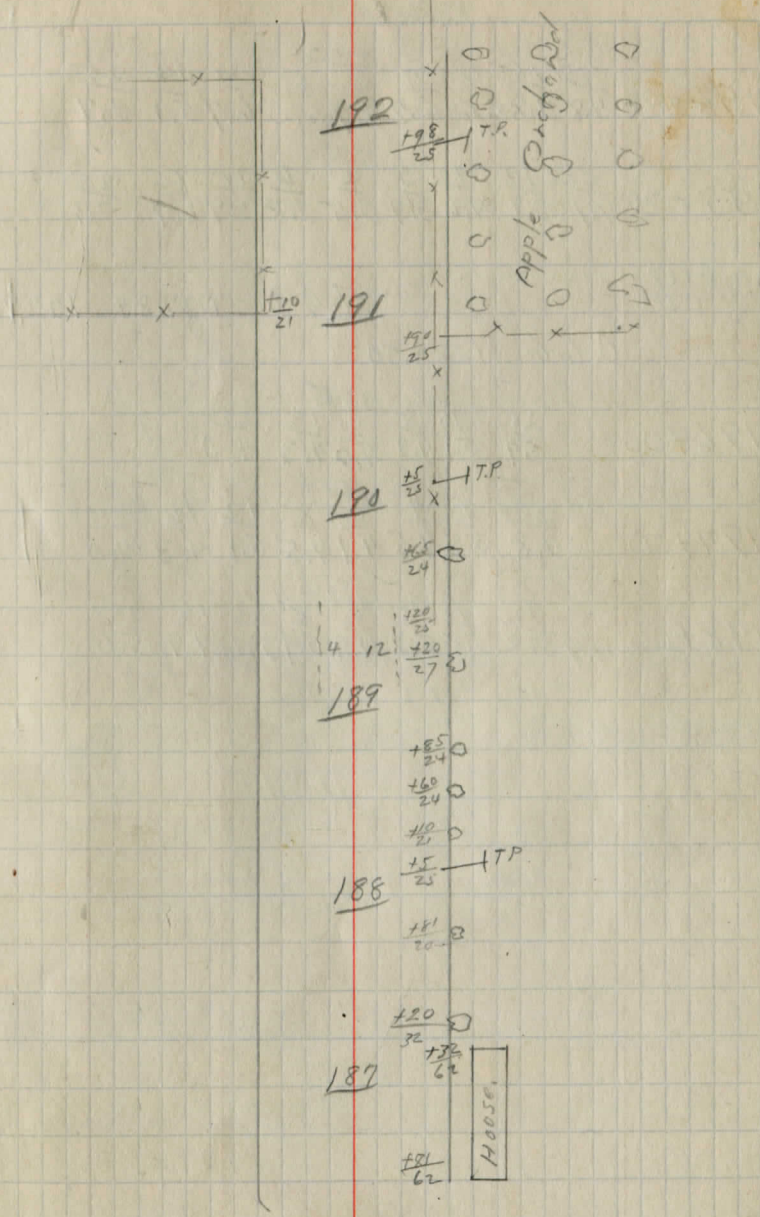 192
+98
25
T.P.
Apple Orchard
+10
21
191
+90
25
+5
25
T.P.
190
+65
24
+20
25
4 12
+20
27
189
+85
24
+60
24
+10
21
+5
25
T P
188
+81
20
+20
32
+32
62
187
House.
+81
62